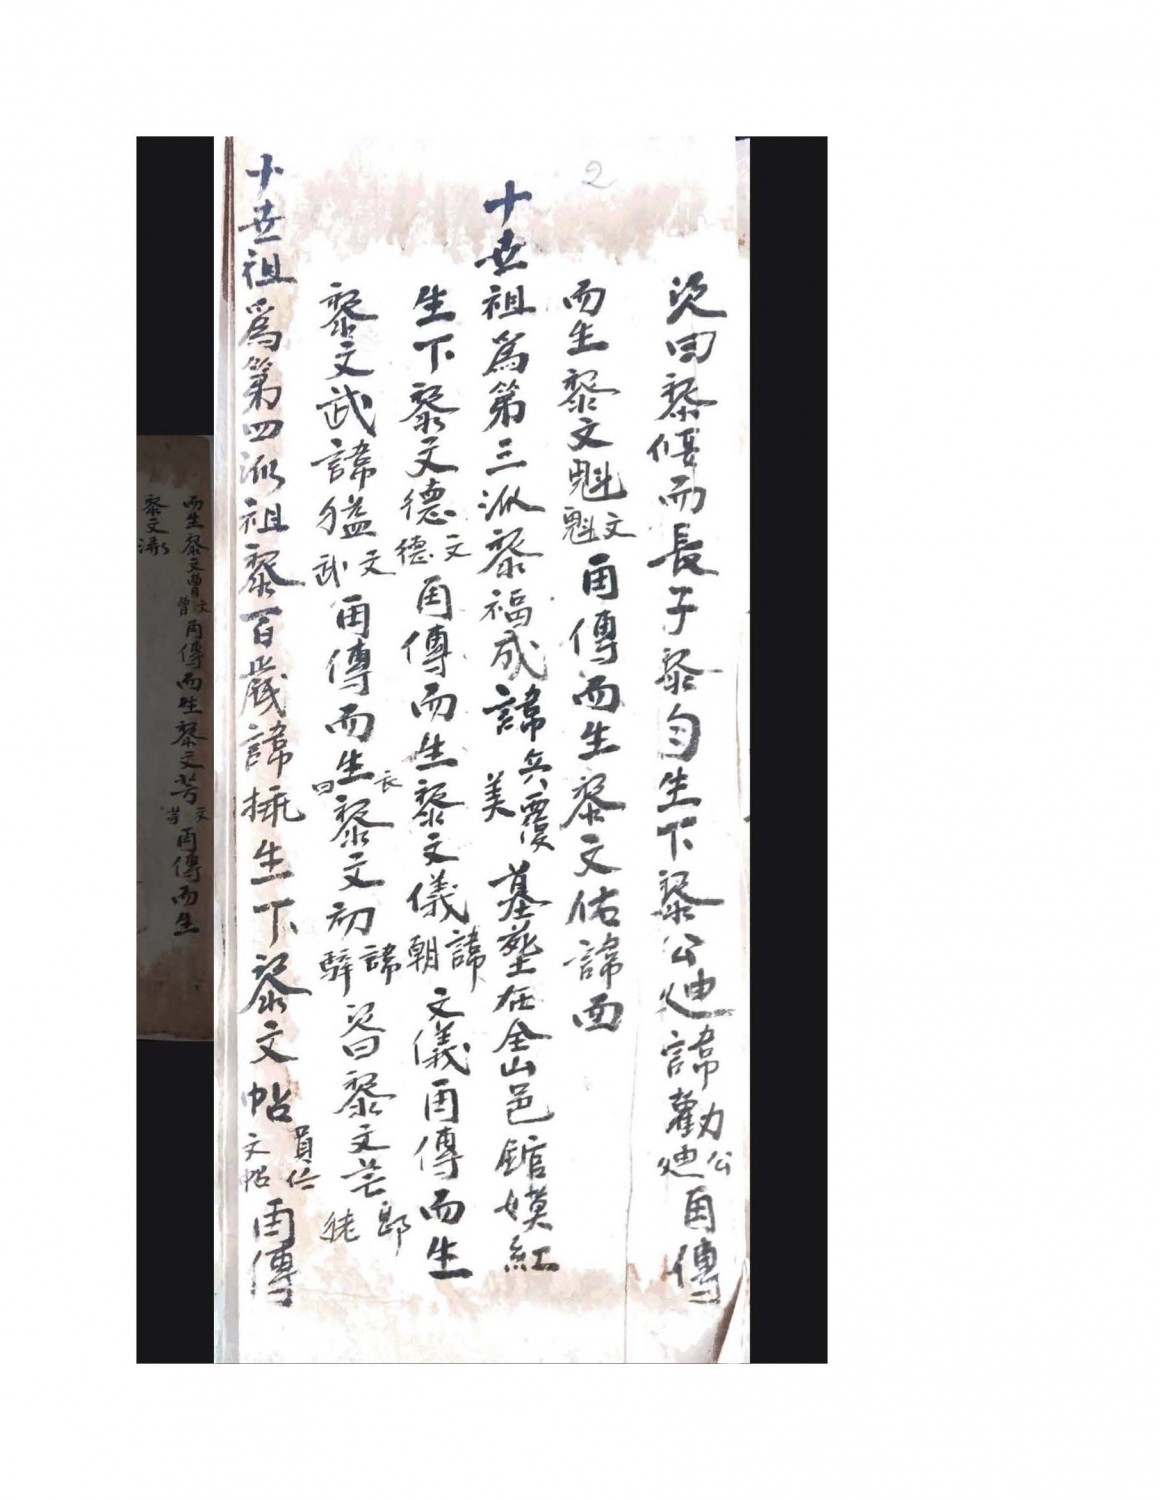 2
次曰黎優而長子黎匀生下黎公廸諱勸公廸再傳
而生黎文魁文魁再傳而生黎文佑諱面
十世祖為第三派黎福成諱兵覆美墓塋在全山邑館嫫紅
生下黎文德文德再傳而生黎文儀諱朝文儀再傳而生
黎文武諱獈文武再傳而生長曰黎文初諱騂次曰黎文芒
十世祖爲第四派祖黎百歲諱生下黎文帖員仁文帖再傳
而生黎文曹文曹再傳而生黎文芳文芳再傳而生
黎文